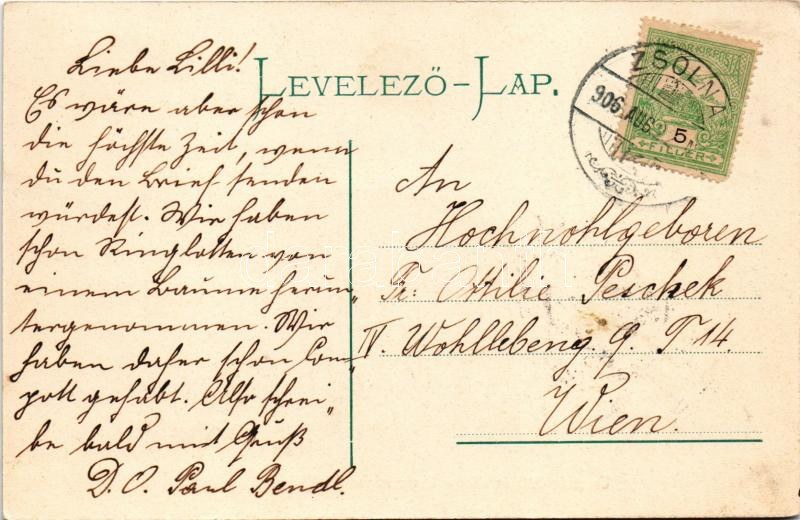 LEVELEZŐ-LAP.
Liebe Lilli!
Es wäre aber schon
die höchste Zeit, wenn
du den Brief senden
würdest. Wir haben
schon Ringlotten von
einem Baume herun„
tergenommen. Wir
haben daher schon Com„
pott gehabt. Also schrei„
be bald mit Gruß
D. O. Paul Bendl.
ZSOLNA
906. AUG
5
FILLÉR
An
Hochwohlgeboren
Fr. Ottilie Peschek
IV. Wohllebeng 9. T 14
Wien.